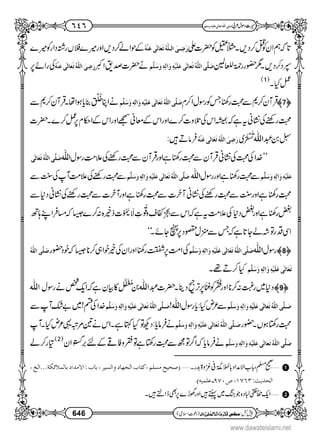 سیرتِ رسولِ عربی صلی اللہ تعالٰی علیہ وسلم ٦٤٦
تاکہ ہم ان کو قتل کر دیں۔ مثلًا عقیل کو حضرت علی رَضِیَ اللّٰہُ تَعَالٰی عَنْہُ کے حوالے کر دیں اور میرے فلاں رشتہ دار کو میرے
سپرد کر دیں۔ مگر حضور رحمۃ للعالمین صَلَّی اللّٰہُ تَعَالٰی عَلَیْہِ وَاٰلِہٖ وَسَلَّم نے حضرت صدیق اکبر رَضِیَ اللّٰہُ تَعَالٰی عَنْہُ کی رائے پر
عمل کیا۔ (1)
﴿7﴾ قرآن کریم سے محبت رکھنا جس کو رسول اکرم صَلَّی اللّٰہُ تَعَالٰی عَلَیْہِ وَاٰلِہٖ وَسَلَّم نے اپنا خُلق بنایا ہوا تھا۔ قرآن کریم سے
محبت رکھنے کی نشانی یہ ہے کہ ہمیشہ اس کی تلاوت کرے اور اس کے معانی سمجھے اور اس کے احکام پر عمل کرے۔ حضرت
سہل بن عبد اللّٰہ تُسْتَری رَضِیَ اللّٰہُ تَعَالٰی عَنْہُ فرماتے ہیں:
’’خدا کی محبت کی نشانی قرآن سے محبت رکھنا ہے اور قرآن سے محبت رکھنے کی علامت رسول اللّٰہ صَلَّی اللّٰہُ تَعَالٰی
عَلَیْہِ وَاٰلِہٖ وَسَلَّم سے محبت رکھنا ہے اور رسول اللّٰہ صَلَّی اللّٰہُ تَعَالٰی عَلَیْہِ وَاٰلِہٖ وَسَلَّم سے محبت رکھنے کی علامت آپ کی سنت سے
محبت رکھنا ہے اور سنت سے محبت رکھنے کی نشانی آخرت سے محبت رکھنا ہے اور آخرت سے محبت رکھنے کی نشانی دنیا سے
بغض رکھنا ہے اور بغض دنیا کی علامت یہ ہے کہ اس سے بجز کفاف و قُوت لَا یَمُوت ذخیرہ نہ کرے جیسا کہ مسافر اپنے ساتھ
اسی قدر توشہ لے جاتا ہے کہ جس سے منزلِ مقصود پر پہنچ جائے۔‘‘
﴿8﴾ رسول اللّٰہ صَلَّی اللّٰہُ تَعَالٰی عَلَیْہِ وَاٰلِہٖ وَسَلَّم کی امت پر شفقت رکھنا اور ان کی خیر خواہی کرنا جیسا کہ خود حضور صَلَّی اللّٰہُ
تَعَالٰی عَلَیْہِ وَاٰلِہٖ وَسَلَّم کیا کرتے تھے۔
﴿9﴾ دنیا میں رغبت نہ کرنا اور فقر کو غنا پر ترجیح دینا۔ حضرت عبد اللّٰہ بن مغفل کا بیان ہے کہ ایک شخص نے رسول اللّٰہ
صَلَّی اللّٰہُ تَعَالٰی عَلَیْہِ وَاٰلِہٖ وَسَلَّم سے عرض کیا: یا رسول اللّٰہ! صَلَّی اللّٰہُ تَعَالٰی عَلَیْہِ وَاٰلِہٖ وَسَلَّم خدا کی قسم! میں بے شک آپ سے
محبت رکھتا ہوں۔ حضور صَلَّی اللّٰہُ تَعَالٰی عَلَیْہِ وَاٰلِہٖ وَسَلَّم نے فرمایا تو دیکھ، کیا کہتا ہے۔ اس نے تین مرتبہ یہی عرض کیا۔ آپ
صَلَّی اللّٰہُ تَعَالٰی عَلَیْہِ وَاٰلِہٖ وَسَلَّم نے فرمایا کہ اگر تو مجھ سے محبت رکھتا ہے تو فقر و فاقہ کے لئے برگستوان (2) تیار کر لے
1 صحیح مسلم، باب الامداد بالملائکۃ فی غزوۃ بدر۔ (صحیح مسلم، کتاب الجہاد والسیر، باب: الامداد بالملائکۃ...الخ،
الحدیث: ١٧٦٣، ص ٩٧٠ علمیہ)
پیش کش: مجلس المدینۃ العلمیۃ (دعوتِ اسلامی) 646
www.dawateislami.net